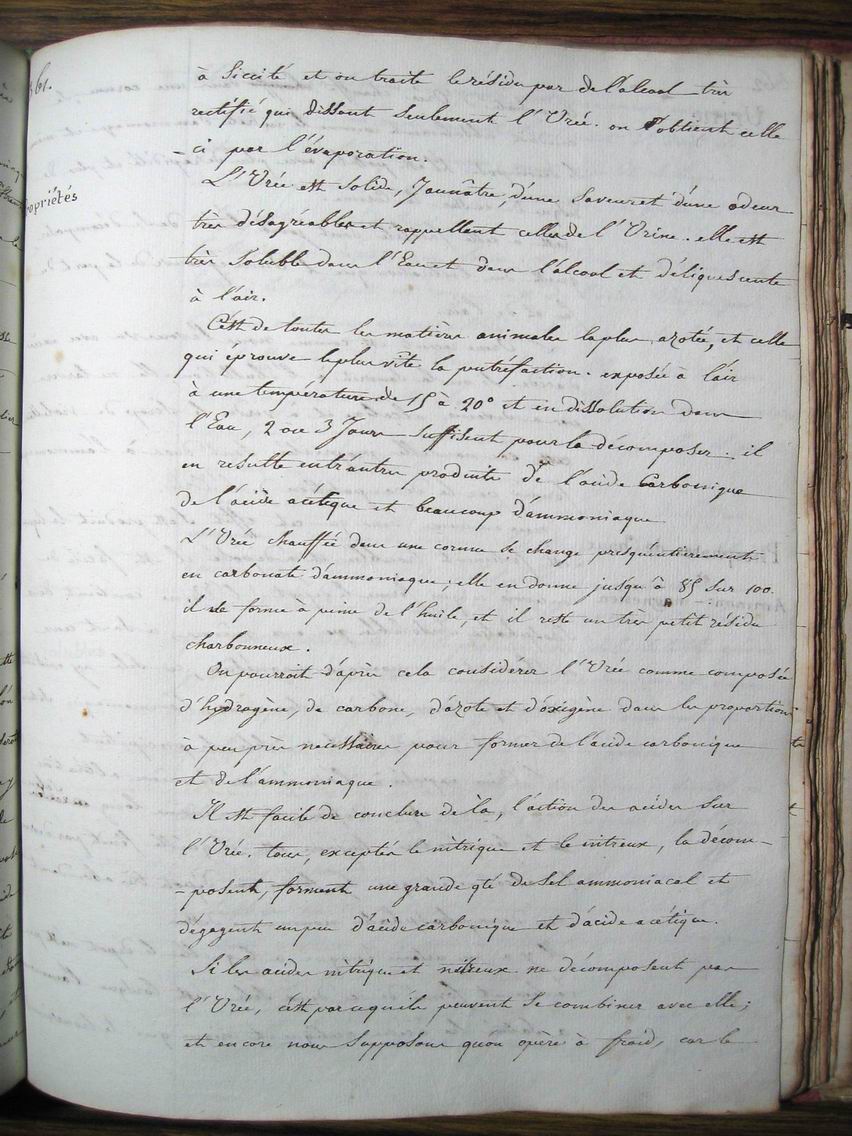 361.
à Siccité et on traite le résidu par de l'alcool très
rectifié qui dissout Seulement l'Urée. on l'obtient celle
-ci par l'évaporation.
Propriétés
L'Urée est Solide, Jaunâtre, d'une Saveur et d'une odeur
très désagréables et rappellent celles de l'Urine. elle est
très Soluble dans l'Eau et dans l'alcool et déliquescente
à l'air.
C'est de toutes les matières animales la plus azotée, et celle
qui éprouve le plus vîte la putréfaction. exposée à l'air
à une température de 15 à 20° et en dissolution dans
l'Eau, 2 ou 3 Jours Suffisent pour la décomposer. il
en résulte entr'autres produits de l'acide Carbonique
de l'acide acétique et beaucoup d'ammoniaque
L'Urée chauffée dans une cornue se change presqu'entièrement
en carbonate d'ammoniaque, elle en donne jusqu'à 85 Sur 100.
il se forme à peine de l'huile, et il reste un très petit résidu
charbonneux.
On pourroit d'après cela considérer l'Urée comme composée
d'hydrogène, de carbone, d'azote et d'oxigène dans les proportions
à peu près necessaires pour former de l'acide carbonique
et de l'ammoniaque.
Il est facile de conclure de là, l'action des acides Sur
l'Urée. tous, exceptés le nitrique et le nitreux, la décom-
-posent, forment une grande qté de Sel ammoniacal et
dégagent un peu d'acide carbonique et d'acide acétique.
Si les acides nitrique et nitreux ne décomposent pas
l'Urée, c'est parcequ'ils peuvent Se combiner avec elle;
et encore nous Supposons quon opère à froid, car le